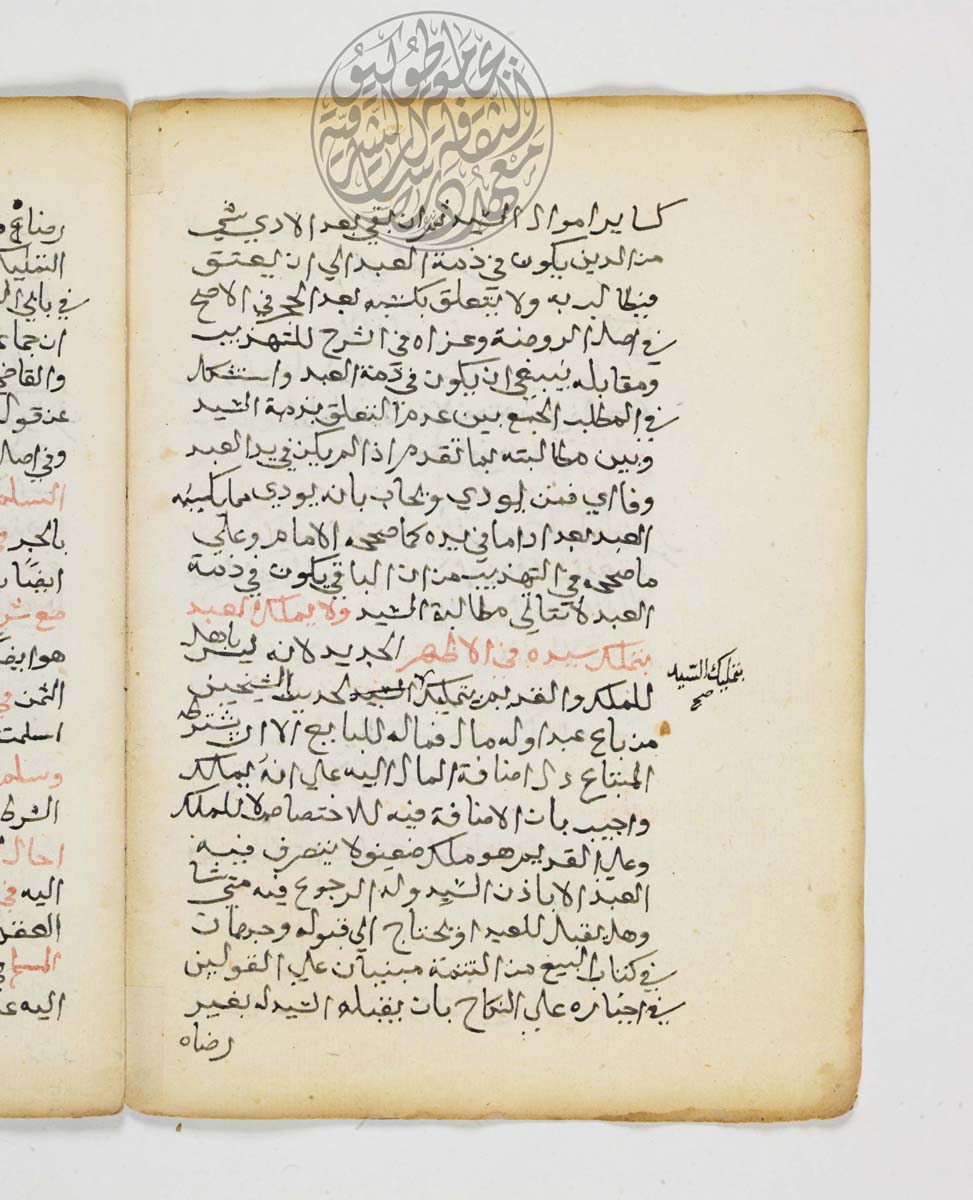 كساير اموال السيد ثم ان بقي بعد الادي شي
من الدين يكون في ذمة العبد الي ان يعتق
فيطالب به ولا يتعلق بكسبه بعد الحجر في الاصح
في اصل الروضة وعزاه في الشرح للتهذيب
ومقابله ينبغي ان يكون في ذمة العبد واستشكال
في المطلب الجمع بين عدم التعلق بذمة السيد
وبين مطالبته بما تقدم اذا لم يكن في يد العبد
وفا اي فمن يودي ويجاب بانه يودي مما يكسبه
العبد بعد ادا ما في يده كما صححه الامام وعلي
ما صححه في التهذيب من ان الباقي يكون في ذمة
العبد لا تتاتي مطالبة السيد ولا يملك العبد
بتمليك سيده في الاظهر الجديد لانه ليس باهل
للملك والقديم يتمليك السيد لحديث الشيخين
بتمليك السيد
صح
من باع عبدا وله مال فماله للبايع الا ان يشترطه
المبتاع دل اضافة المال اليه علي انه يملك
واجيب بان الاضافة فيه للاختصاص لا للملك
وعلي القديم هو ملك ضعيف لا يتصرف فيه
العبد الا باذن السيد وله الرجوع فيه متي شا
وهل يقبل للعبد او يحتاج الي قبوله وجهان
في كتاب البيع من التتمة مبنيان علي القولين
في اجباره علي النكاح بان يقبله السيد له بغير
رضاه
رضاه
التمليك
في باقي
ان جماعة
والقاضي
عن قول
وفي اصل
السلم
بالجر
ايضا
مع شر
هو ايضا
الثمن في
اسلمت
وسلم
الشرط
احال
اليه في
العقد
المسلم
اليه